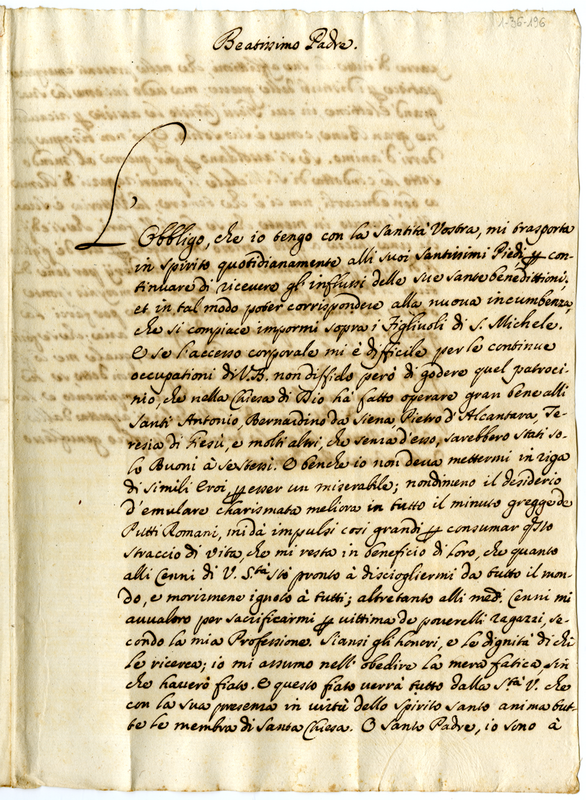 1-36-196
Beatissimo Padre.
L'Obbligo, che io tengo con la Santità Vostra, mi trasporta
in spirito quotidianamente alli suoi Santissimi Piedi per con-
tinuare di ricevere gl'influssi delle sue sante benedittioni,
et in tal modo poter corrispondere alla nuova incumbenza,
che si compiace impormi sopra i Figliuoli di S. Michele.
E se l'accesso corporale mi è difficile per le continue
occupationi di V.B. non diffido però di godere quel patroci-
nio, che nella Chiesa di Dio hà fatto operare gran bene alli
Santi Antonio, Bernardino da Siena, Pietro d'Alcantara, Te-
resia di Giesù, e molti altri, che senza d'esso, sarebbero stati so-
lo Buoni à se stessi. E benche io non deva mettermi in riga
di simili Eroi per esser un miserabile; nondimeno il desiderio
d'emulare charismata meliora in tutto il minuto gregge de
Putti Romani, mi dà impulsi così grandi per consumar questo
straccio di vita, che mi resta in beneficio di loro, che quanto
alli Cenni di V. Stà stò pronto à disciogliermi da tutto il mon-
do, e morirmene ignoto à tutti; altretanto alli med. Cenni mi
avvaloro per sacrificarmi per vittima de poverelli ragazzi, se-
condo la mia Professione. Siansi gli honori, e le dignità di chi
le ricerca; io mi assumo nell'obedire la mera fatica, sin
che haverò fiato. E questo fiato verrà tutto dalla Stà V. che
con la sua presenza in virtù dello Spirito Santo anima tut-
te le membra di Santa Chiesa. O Santo Padre, io sono à